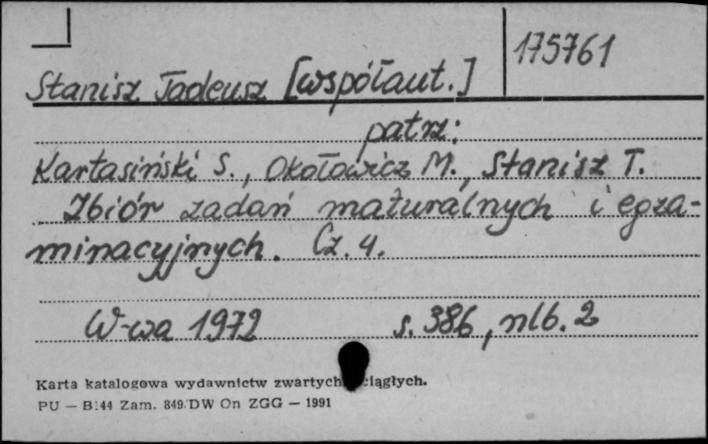 175761
Stanisz Tadeusz [współaut.]
patrz:
Kartasiński S., Okołowicz M., Stanisz T.
Zbiór zadań maturalnych i egza-
minacyjnych. Cz. 4.
W-wa 1972 s. 386, nlb. 2
Karta katalogowa wydawnictw zwartych ciągłych.
PU — B:44 Zam. 849/DW On ZGG — 1991